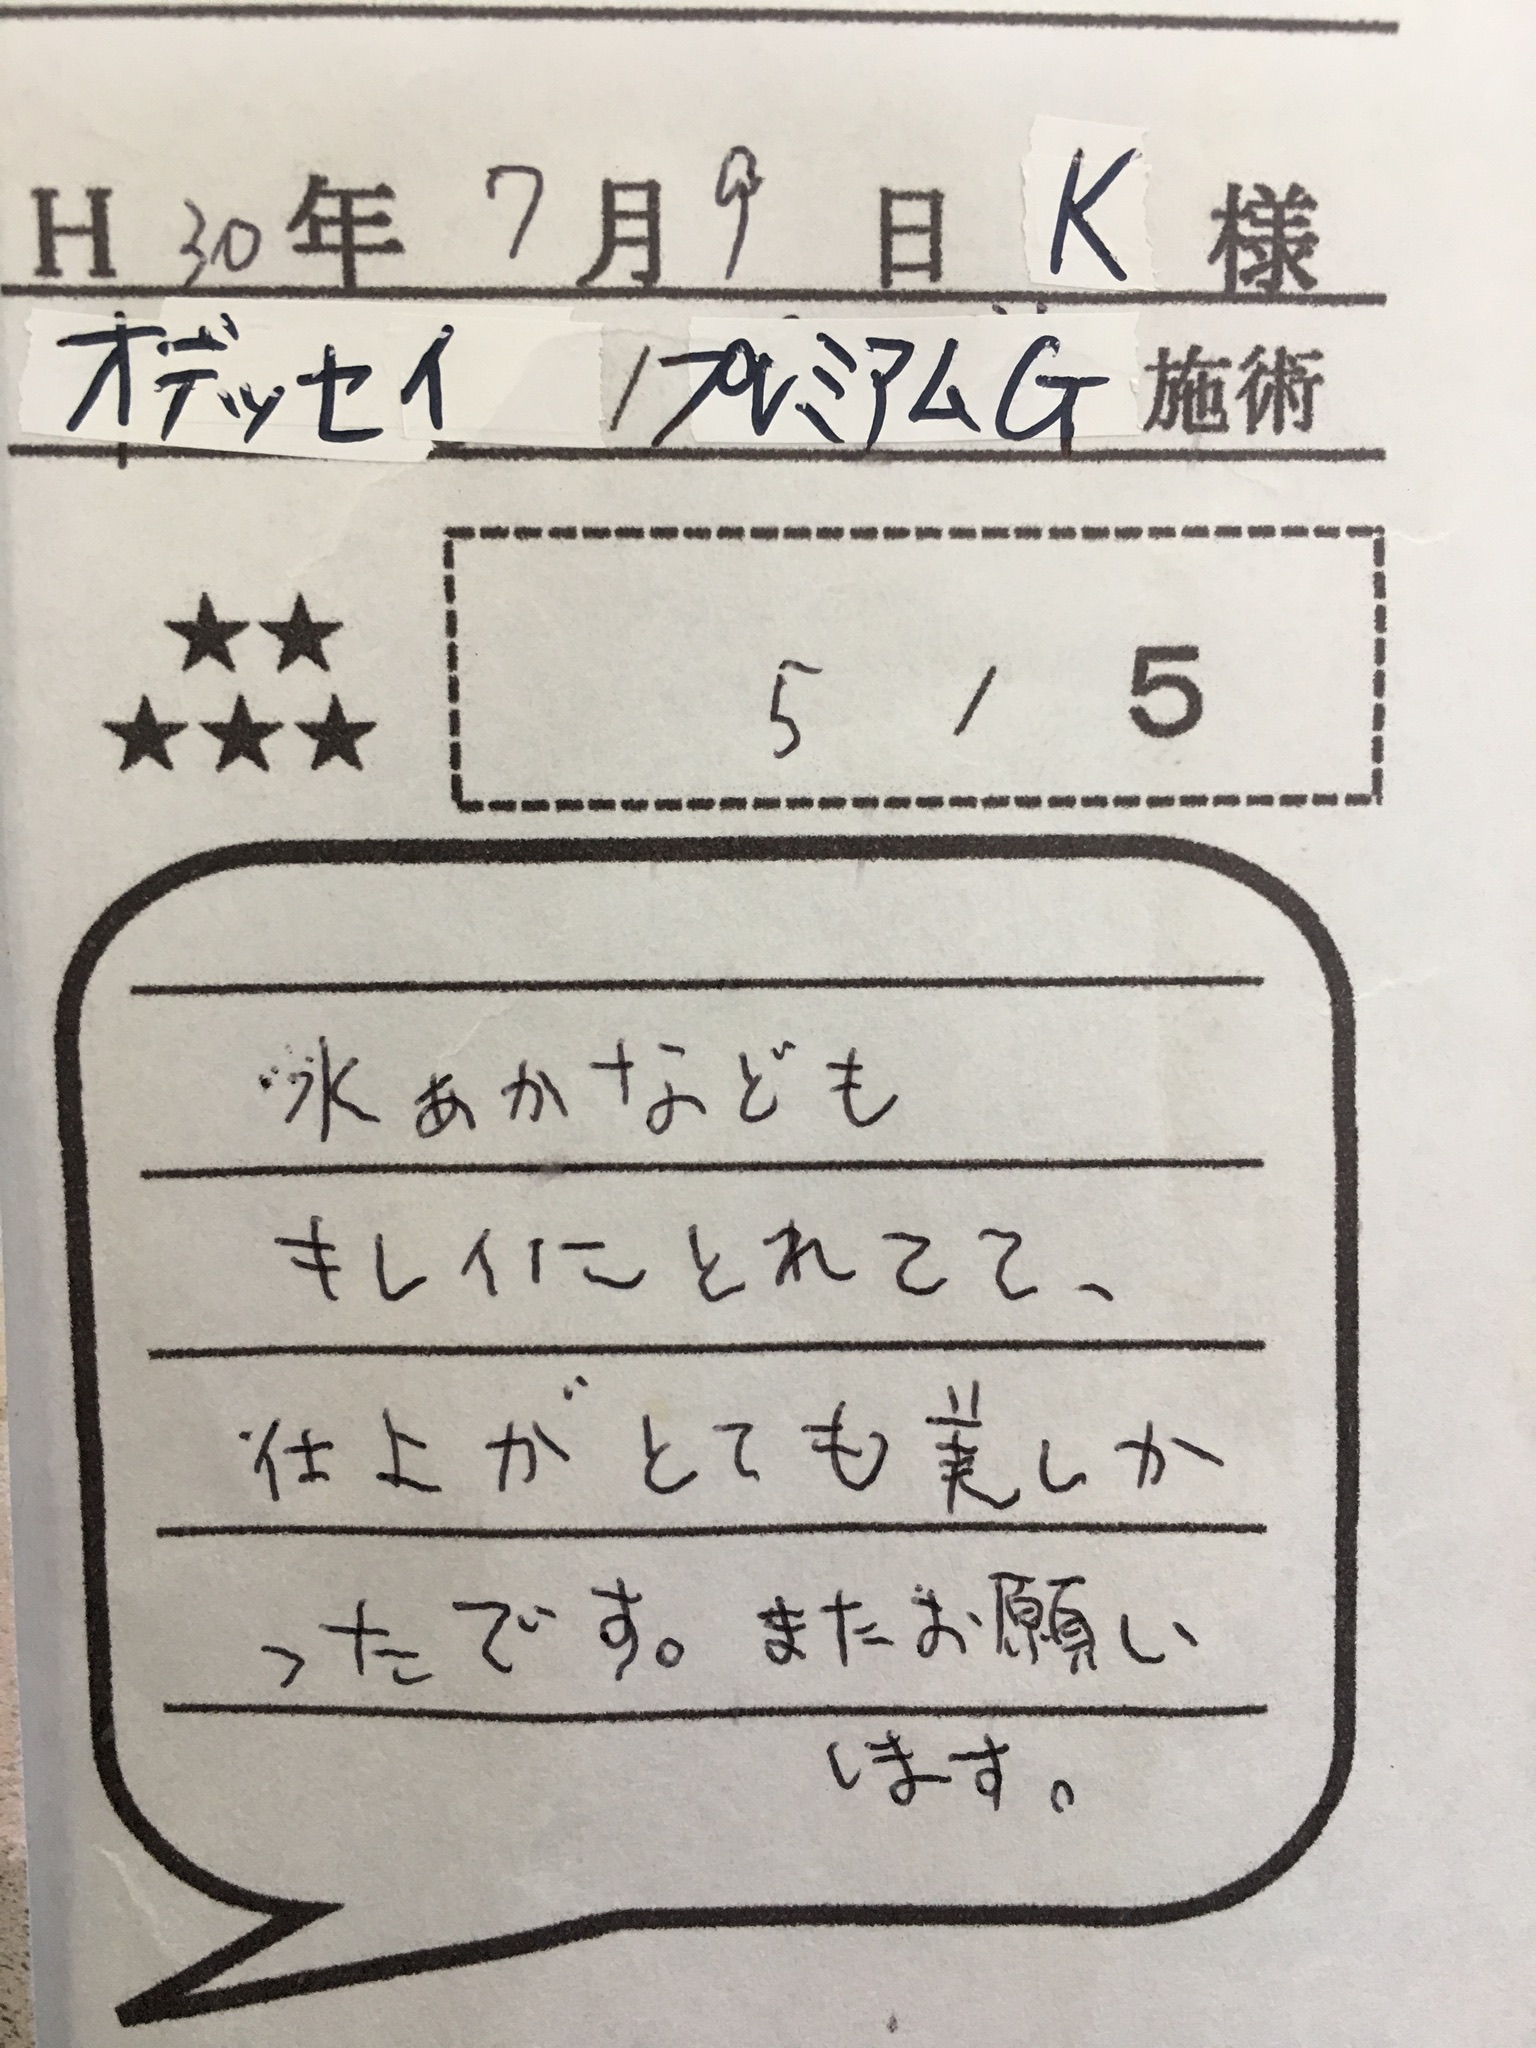 H 30年 7月 9日 K 様
オデッセイ /プレミアムG 施術
★★
★★★
5 / 5
水あかなども
キレイにとれてて、
仕上がとても美しか
ったです。またお願い
します。